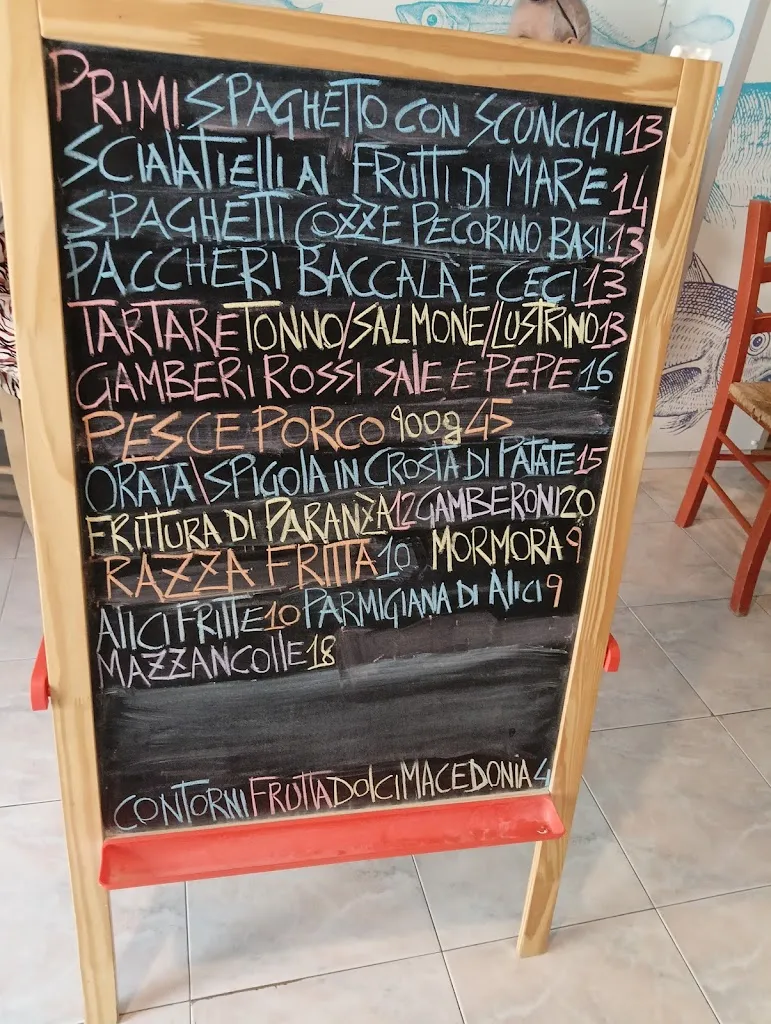 PRIMI SPAGHETTO CON SCONCIGLI 13
SCIALATIELLI AI FRUTTI DI MARE 14
SPAGHETTI COZZE PECORINO BASIL. 13
PACCHERI BACCALÀ E CECI 13
TARTARE TONNO/SALMONE/LUSTRINO 13
GAMBERI ROSSI SALE E PEPE 16
PESCE PORCO 900g 45
ORATA\SPIGOLA IN CROSTA DI PATATE 15
FRITTURA DI PARANZA 12 GAMBERONI 20
RAZZA FRITTA 10 MORMORA 9
ALICI FRITTE 10 PARMIGIANA DI ALICI 9
MAZZANCOLLE 18
CONTORNI FRUTTA DOLCI MACEDONIA 4